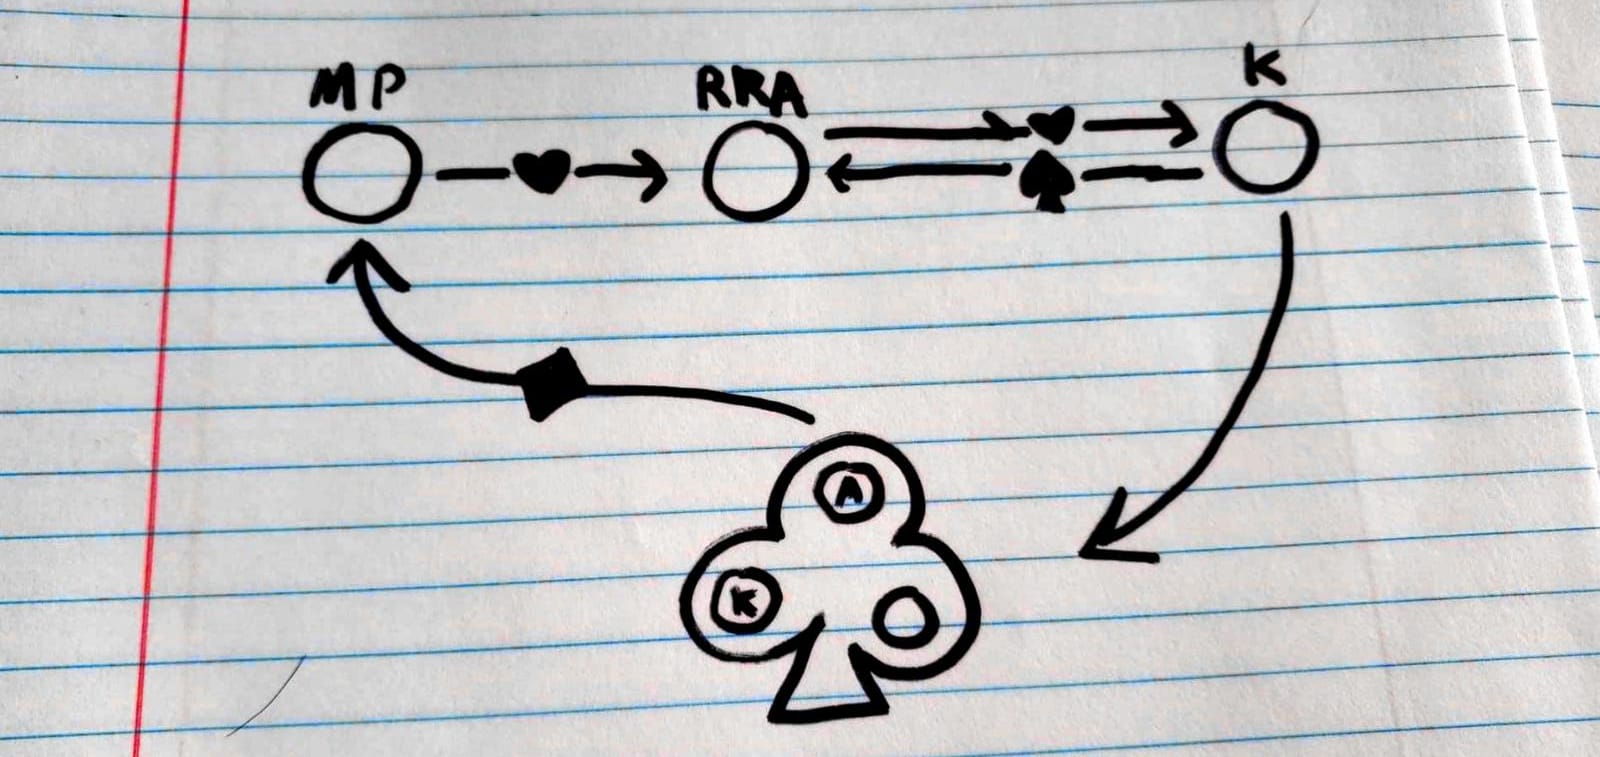 MP RRA K
A
K